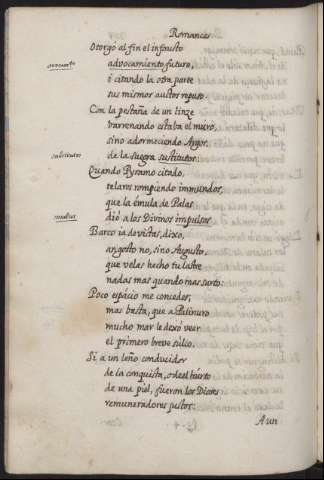 Romances
Otorgó al fin el infausto
avocamiento futuro,
i citando la otra parte
sus mismos auctos repuso.
Con la pestaña de un lince
barrenando estaba el muro,
sino adormeciendo Argos
de la suegra sustitutos.
Quando Pyramo citado,
telares rompiendo inmundos,
que la émula de Palas
dió a los Divinos impulsos.
Barco ia de vistas, dixo,
angosto no, sino Augusto,
que velas hecho tu lastre
nadas mas quando mas surto.
Poco espácio me concedes,
mas basta, que a Palinuro
mucho mar le dexó veer
el primero breve sulco.
Si a un leño conducidor
de la conquista, o de el hurto
de una piel, fueron los Dioses
remuneradores justos.
A un